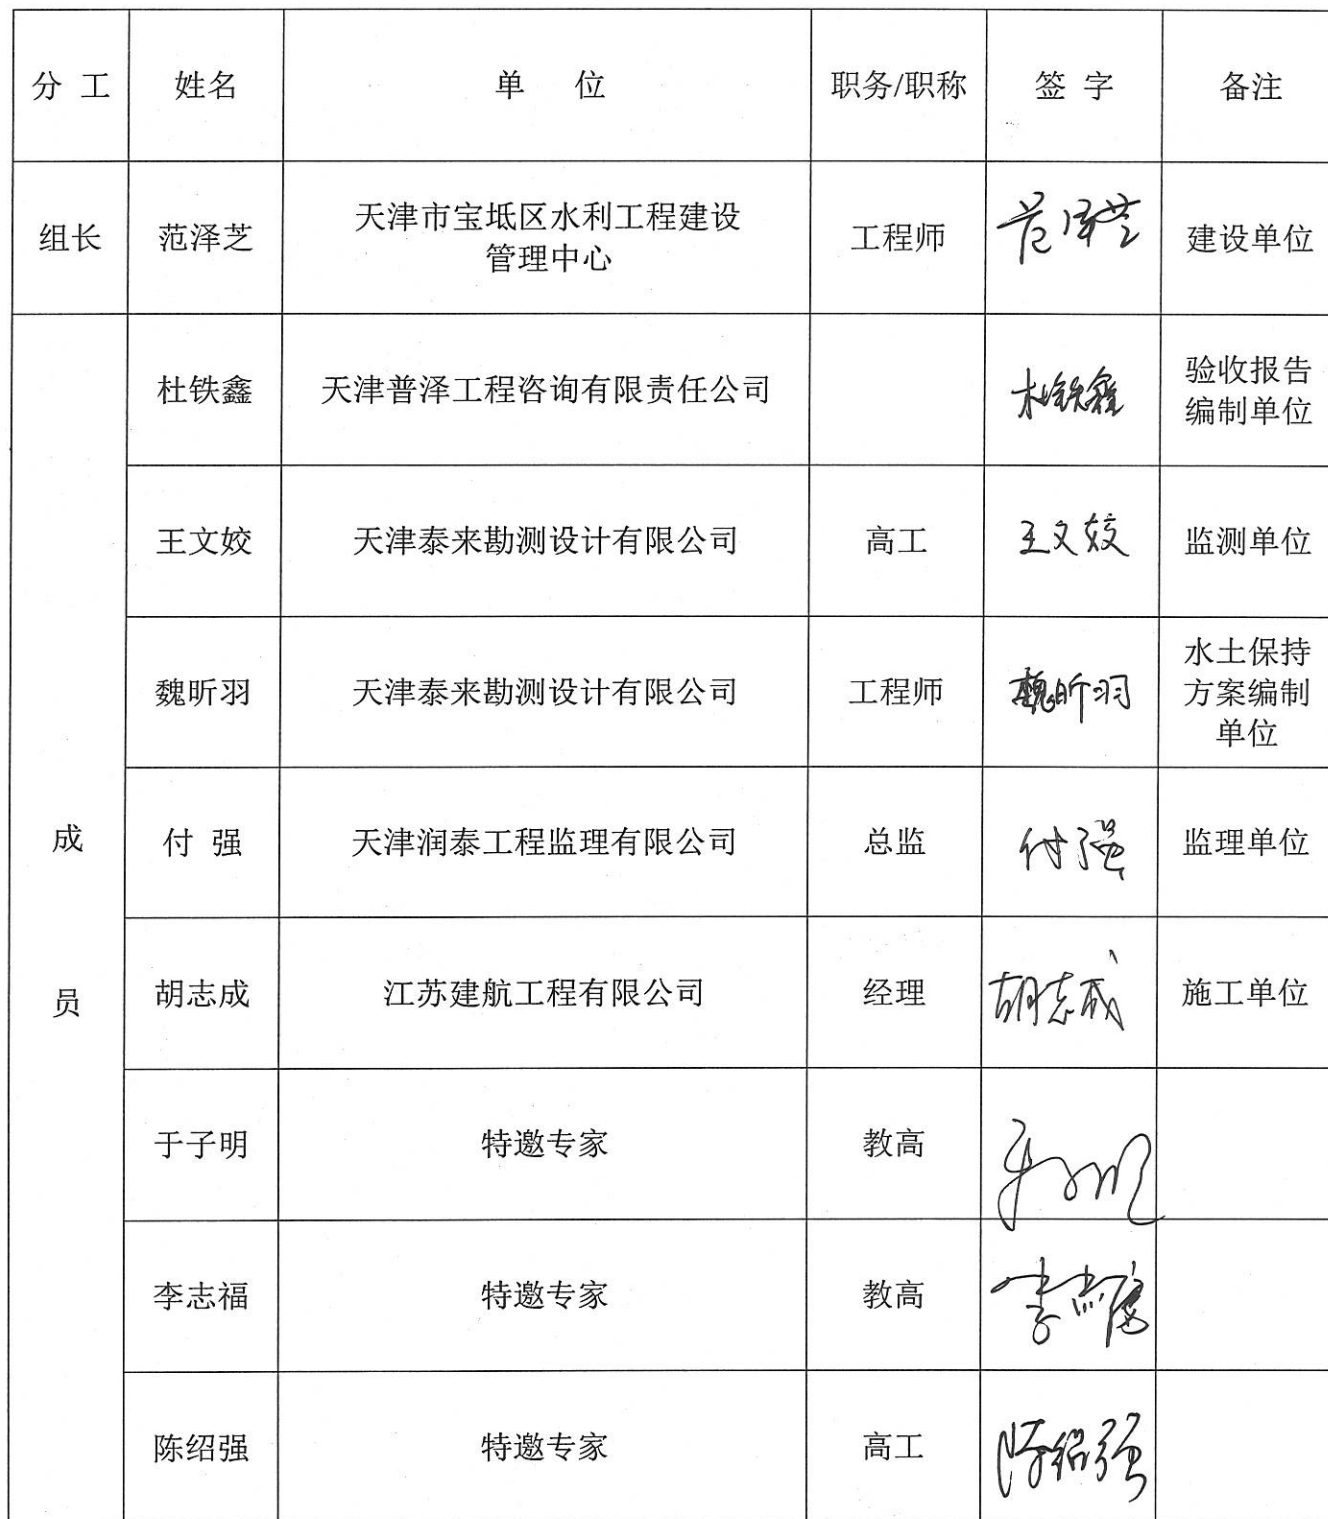 分 工 姓名 单 位 职务/职称 签 字 备注
组长 范泽芝 天津市宝坻区水利工程建设
管理中心 工程师 范泽芝 建设单位
成
员
杜铁鑫 天津普泽工程咨询有限责任公司 杜铁鑫 验收报告
编制单位
王文姣 天津泰来勘测设计有限公司 高工 王文姣 监测单位
魏昕羽 天津泰来勘测设计有限公司 工程师 魏昕羽 水土保持
方案编制
单位
付 强 天津润泰工程监理有限公司 总监 付强 监理单位
胡志成 江苏建航工程有限公司 经理 胡志成 施工单位
于子明 特邀专家 教高 于子明
李志福 特邀专家 教高 李志福
陈绍强 特邀专家 高工 陈绍强